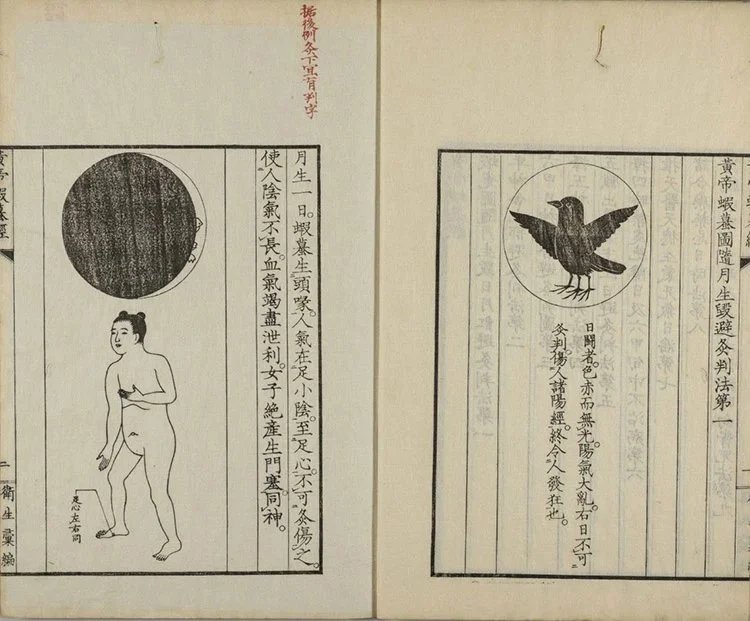 黃帝蝦蟇圖隨月生毀避灸判法第一
日鬪者。色赤而無光陽氣大亂右日不可
灸判傷人諸陽經。終令人發狂也。
據後例灸下宜有判字
月生一日。蝦蟇生頭喙。人氣在足小陰。至足心。不可灸傷之。
使人陰氣不長。血氣竭盡泄利。女子絶產生門塞。同神。
足心左右同
黃帝蝦蟇經
二
衛生彙編